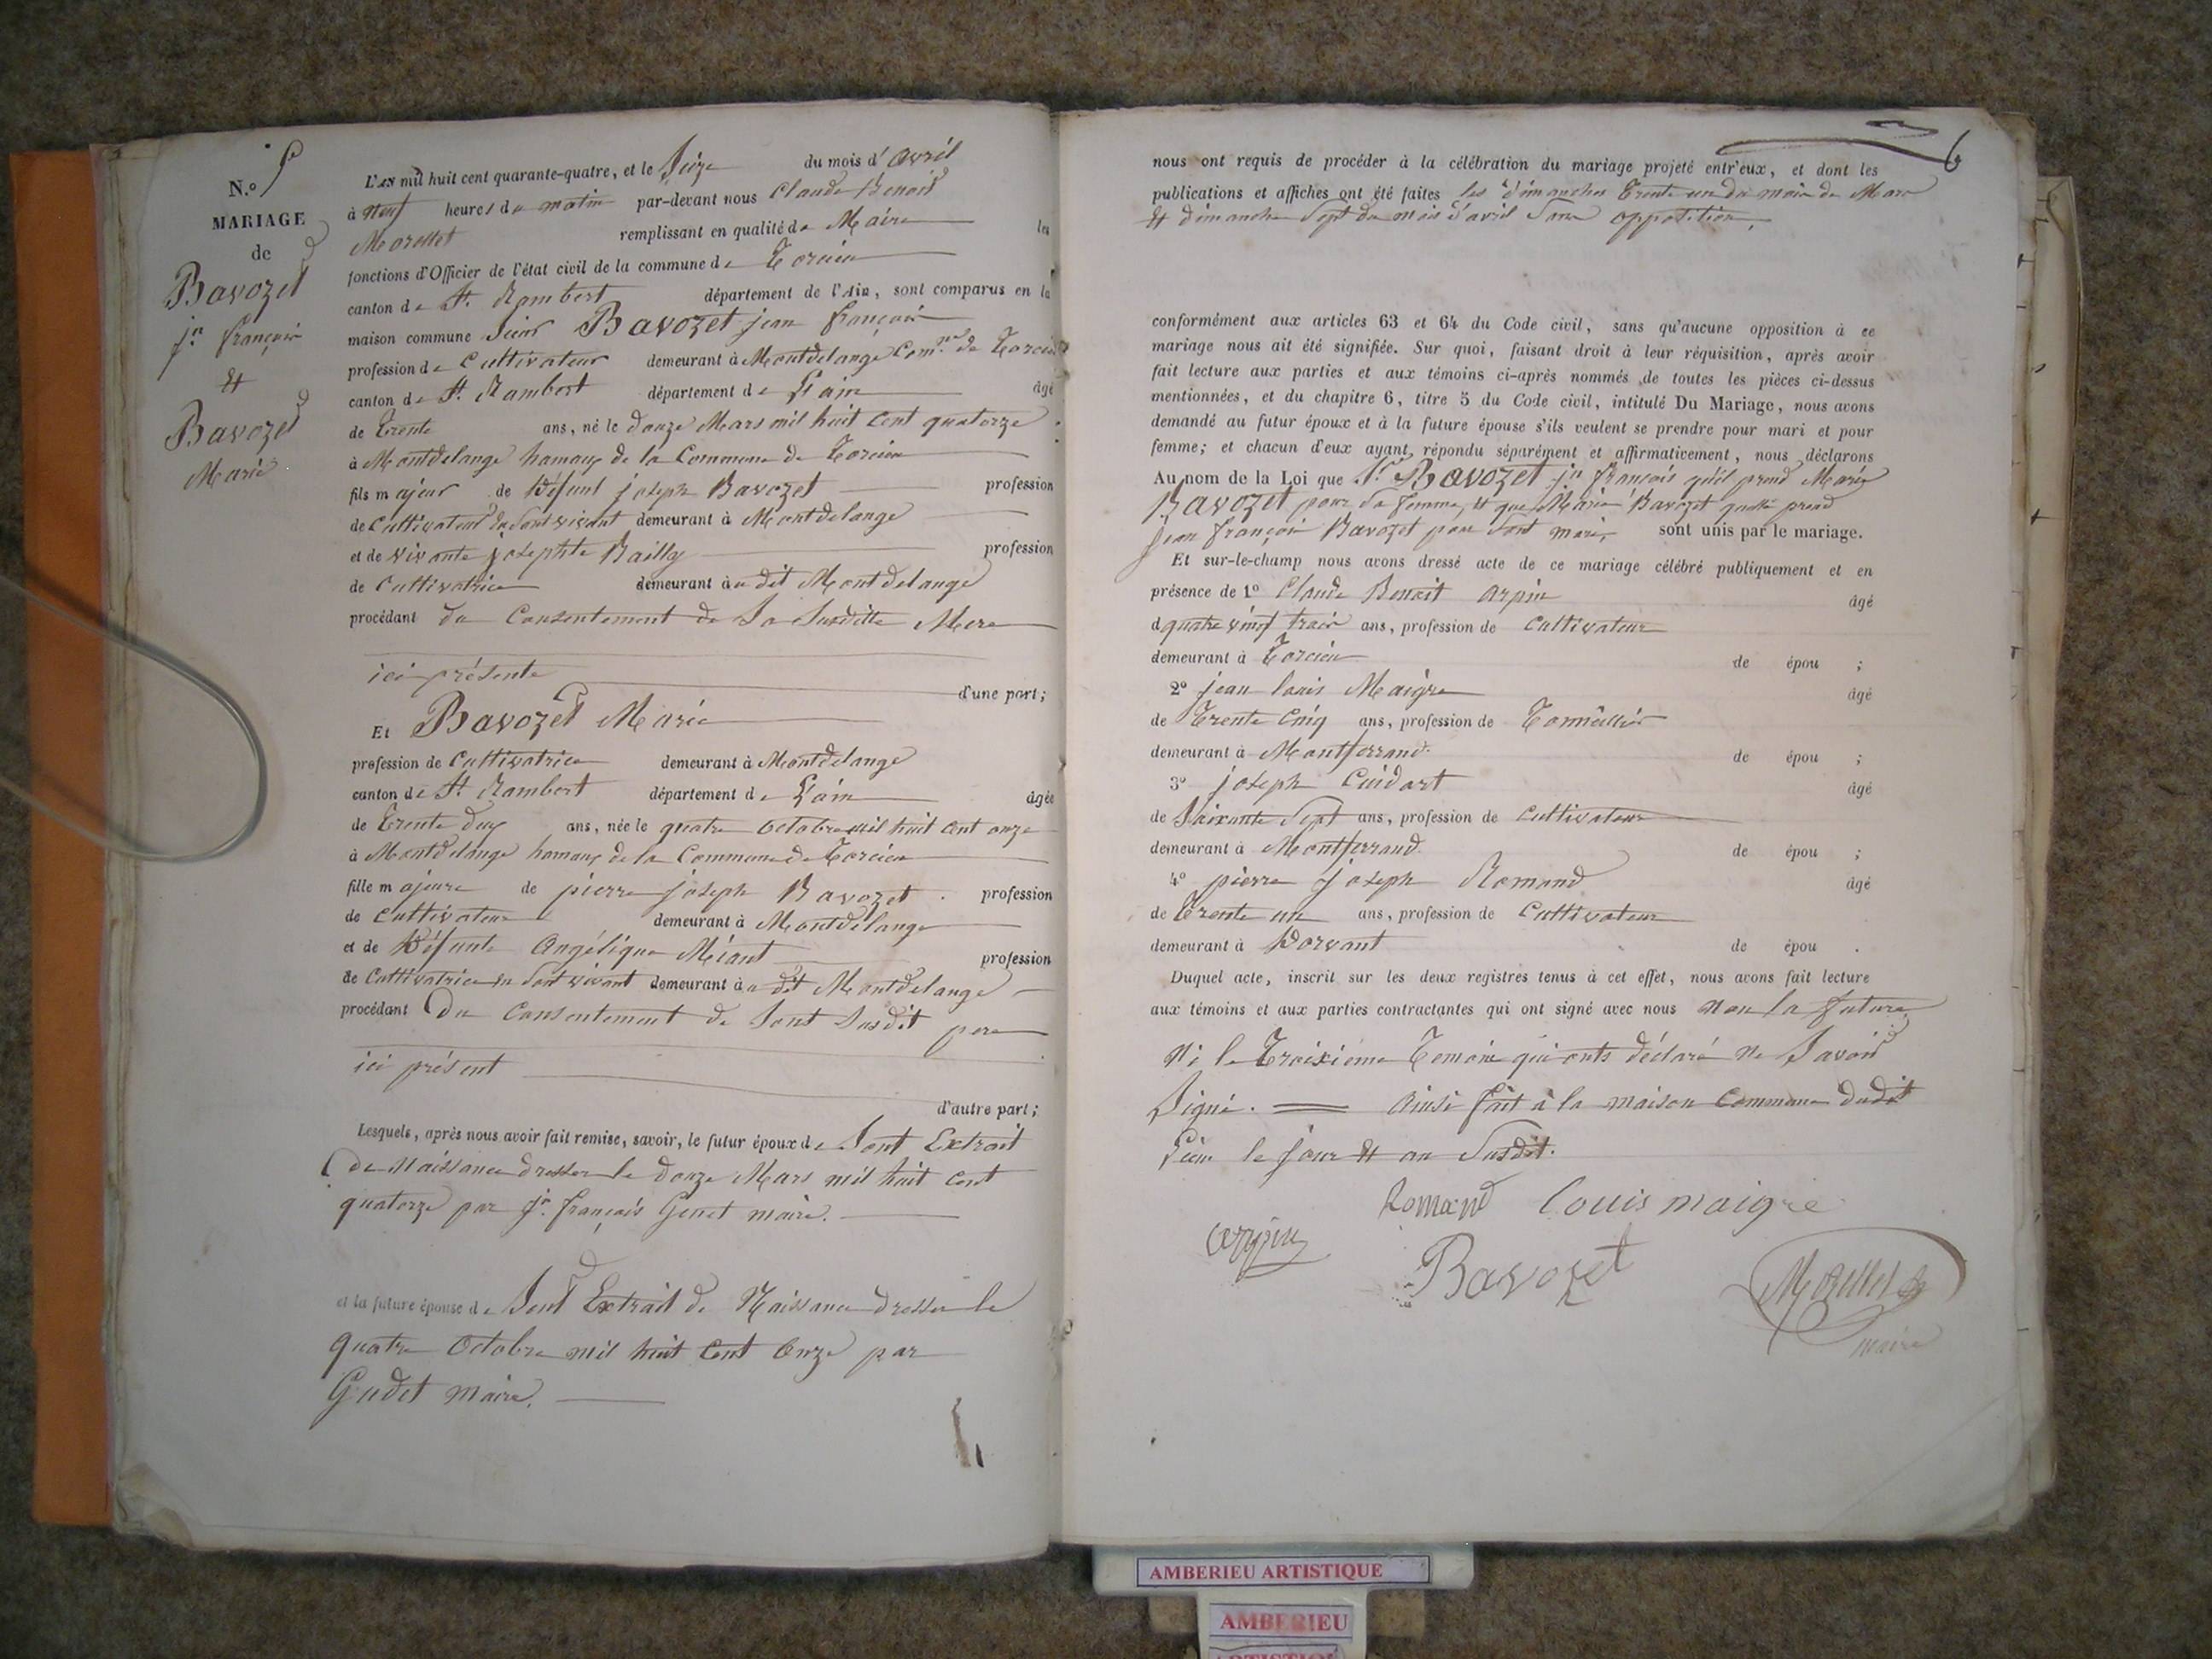 N.º 5
MARIAGE
de
Bavozet
jn françois
&
Bavozet
Marie
L'AN mil huit cent quarante-quatre, et le Seize du mois d'avril
à neuf heures du matin par-devant nous Claude Benoit
Morellet remplissant en qualité de Maire les
fonctions d'Officier de l'état civil de la commune de Torcieu
canton de St. Rambert département de l'Ain, sont comparus en la
maison commune Sieur Bavozet jean françois
profession de Cultivateur demeurant à Montdelange Comne de Torcieu
canton de St. Rambert département de L'ain âgé
de Trente ans, né le douze Mars mil huit Cent quatorze
à Montdelange hamaux de la Commune de Torcieu
fils majeur de Défunt joseph Bavozet profession
de Cultivateur en Sont vivant demeurant à Montdelange
et de vivante josephte Bailly profession
de Cultivatrice demeurant à u dit Montdelange
procédant du Consentement de Sa Susditte Mere
ici présente
d'une part;
Et Bavozet Marie
profession de Cultivatrice demeurant à Montdelange
canton de St. Rambert département de L'ain âgée
de Trente deux ans, née le quatre octobre mil huit Cent onze
à Montdelange hamaux de la Commune de Torcieu
fille majeure de pierre joseph Bavozet profession
de Cultivateur demeurant à Montdelange
et de Défunte Angélique Méant profession
de Cultivatrice en Sont vivant demeurant à u dit Montdelange
procédant Du Consentement de Sont Susdit pere
ici présent
d'autre part;
Lesquels, après nous avoir fait remise, savoir, le futur époux de Sont Extrait
De Naissance dresser le douze Mars mil huit Cent
quatorze par jn. françois Genet maire.
et la future épouse de Sont Extrait de Naissance dresser le
quatre Octobre mil huit Cent Onze par
Gudet maire.
6
nous ont requis de procéder à la célébration du mariage projeté entr'eux, et dont les
publications et affiches ont été faites les dimanches Trente un du mois de Mars
& dimanche Sept du mois d'avril Sans opposition,
conformément aux articles 63 et 64 du Code civil, sans qu'aucune opposition à ce
mariage nous ait été signifiée. Sur quoi, faisant droit à leur réquisition, après avoir
fait lecture aux parties et aux témoins ci-après nommés de toutes les pièces ci-dessus
mentionnées, et du chapitre 6, titre 5 du Code civil, intitulé Du Mariage, nous avons
demandé au futur époux et à la future épouse s'ils veulent se prendre pour mari et pour
femme; et chacun d'eux ayant répondu séparément et affirmativement, nous déclarons
Au nom de la Loi que Sr. Bavozet jn françois qu'il prend Marie
Bavozet pour Sa femme, & que Marie Bavozet quelle prend
jean françois Bavozet pour Sont mari, sont unis par le mariage.
Et sur-le-champ nous avons dressé acte de ce mariage célébré publiquement et en
présence de 1º Claude Benoit arpin âgé
d quatre vingt trois ans, profession de Cultivateur
demeurant à Torcieu de épou ;
2º jean louis Maigre âgé
de Trente Cinq ans, profession de Tonnellier
demeurant à Montferrand. de épou ;
3º joseph Cuidart âgé
de Soixante Sept ans, profession de Cultivateur
demeurant à Montferrand. de épou ;
4º pierre joseph Romand âgé
de Trente un ans, profession de Cultivateur
demeurant à Dorvant de épou .
Duquel acte, inscrit sur les deux registres tenus à cet effet, nous avons fait lecture
aux témoins et aux parties contractantes qui ont signé avec nous non la future
ni le Troixième Temoin qui onts déclaré ne Savoir
Signé. Ainsi fait à la maison Commune dudit
Lieu le jour & an Susdit.
Romand Louis maigre
arpin
Bavozet
Morellet
maire
AMBERIEU ARTISTIQUE
AMBERIEU
ARTISTIQUE